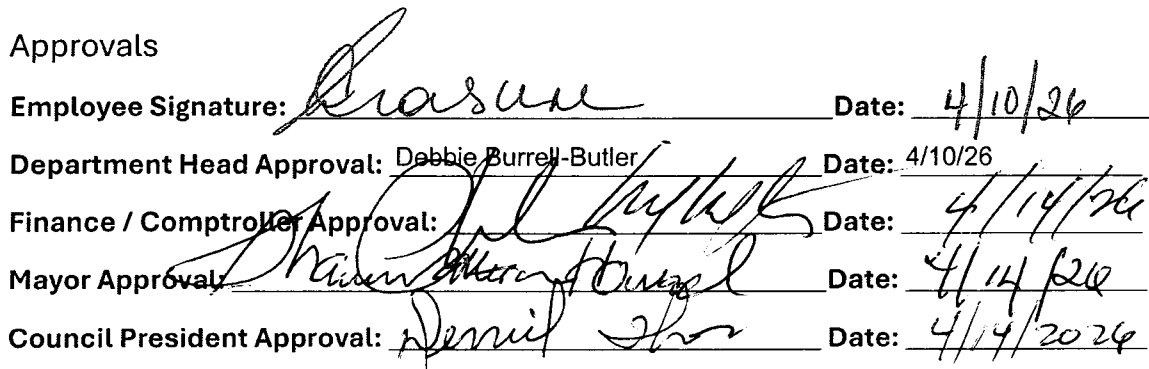 Approvals
Employee Signature: Date: 4/10/26
Department Head Approval: Debbie Burrell-Butler Date: 4/10/26
Finance / Comptroller Approval: Date: 4/14/26
Mayor Approval: Shawn Date: 4/14/26
Council President Approval: Date: 4/14/2026